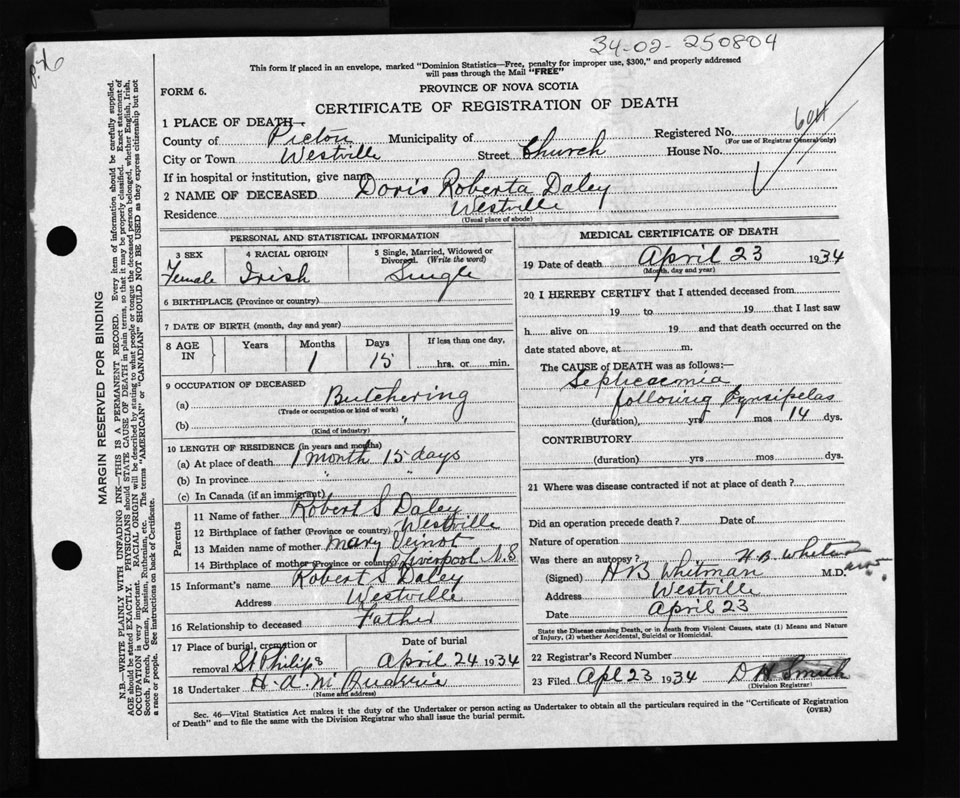 34-02-250804
This form if placed in an envelope, marked "Dominion Statistics—Free, penalty for improper use, $300," and properly addressed
will pass through the Mail "FREE"
FORM 6.
PROVINCE OF NOVA SCOTIA
CERTIFICATE OF REGISTRATION OF DEATH
1 PLACE OF DEATH
County of Pictou Municipality of Registered No.
(For use of Registrar General only)
City or Town Westville Street Church House No.
If in hospital or institution, give name
2 NAME OF DECEASED Doris Roberta Daley
Residence Westville
(Usual place of abode)
PERSONAL AND STATISTICAL INFORMATION
3 SEX 4 RACIAL ORIGIN 5 Single, Married, Widowed or Divorced. (Write the word)
Female Irish Single
6 BIRTHPLACE (Province or country)
7 DATE OF BIRTH (month, day and year)
8 AGE IN Years Months Days If less than one day,
1 15 hrs. or min.
9 OCCUPATION OF DECEASED
(a) Butchering
(Trade or occupation or kind of work)
(b) "
(Kind of industry)
10 LENGTH OF RESIDENCE (in years and months)
(a) At place of death 1 month 15 days
(b) In province " "
(c) In Canada (if an immigrant)
Parents
11 Name of father Robert S Daley
12 Birthplace of father (Province or country) Westville
13 Maiden name of mother Mary Veinot
14 Birthplace of mother (Province or country) Liverpool N.S
15 Informant's name Robert S Daley
Address Westville
16 Relationship to deceased Father
17 Place of burial, cremation or removal St Philips Date of burial April 24 1934
18 Undertaker H. A. McQuarrie
(Name and address)
MEDICAL CERTIFICATE OF DEATH
19 Date of death April 23 1934
(Month, day and year)
20 I HEREBY CERTIFY that I attended deceased from
19 to 19 that I last saw
h alive on 19 and that death occurred on
date stated above, at m.
The CAUSE OF DEATH was as follows:—
Septicaemia
following Erysipelas
(duration), yrs mos 14 dys.
CONTRIBUTORY
(duration) yrs mos dys.
21 Where was disease contracted if not at place of death?
Did an operation precede death? Date of
Nature of operation
Was there an autopsy?
(Signed) H B Whitman M.D.
Address Westville
Date April 23
State the Disease causing Death, or in death from Violent Causes, state (1) Means and Nature
of Injury, (2) whether Accidental, Suicidal or Homicidal.
22 Registrar's Record Number
23 Filed Apl 23 1934 D H Smith
(Division Registrar)
Sec. 46—Vital Statistics Act makes it the duty of the Undertaker or person acting as Undertaker to obtain all the particulars required in the "Certificate of Registration
of Death" and to file the same with the Division Registrar who shall issue the burial permit.
(OVER)
MARGIN RESERVED FOR BINDING
N.B.—WRITE PLAINLY WITH UNFADING INK—THIS IS A PERMANENT RECORD. Every item of information should be carefully supplied.
AGE should be stated EXACTLY. PHYSICIANS should STATE CAUSE OF DEATH in plain terms, so that it may be properly classified. Exact statement of
OCCUPATION is very important. RACIAL ORIGIN will be described by stating to what people or tongue the deceased person belonged, whether English, Irish,
Scotch, French, German, Russian, Ruthenian, etc. The terms "AMERICAN" or "CANADIAN" SHOULD NOT BE USED as they express citizenship but not
a race or people. See instructions on back of Certificate.